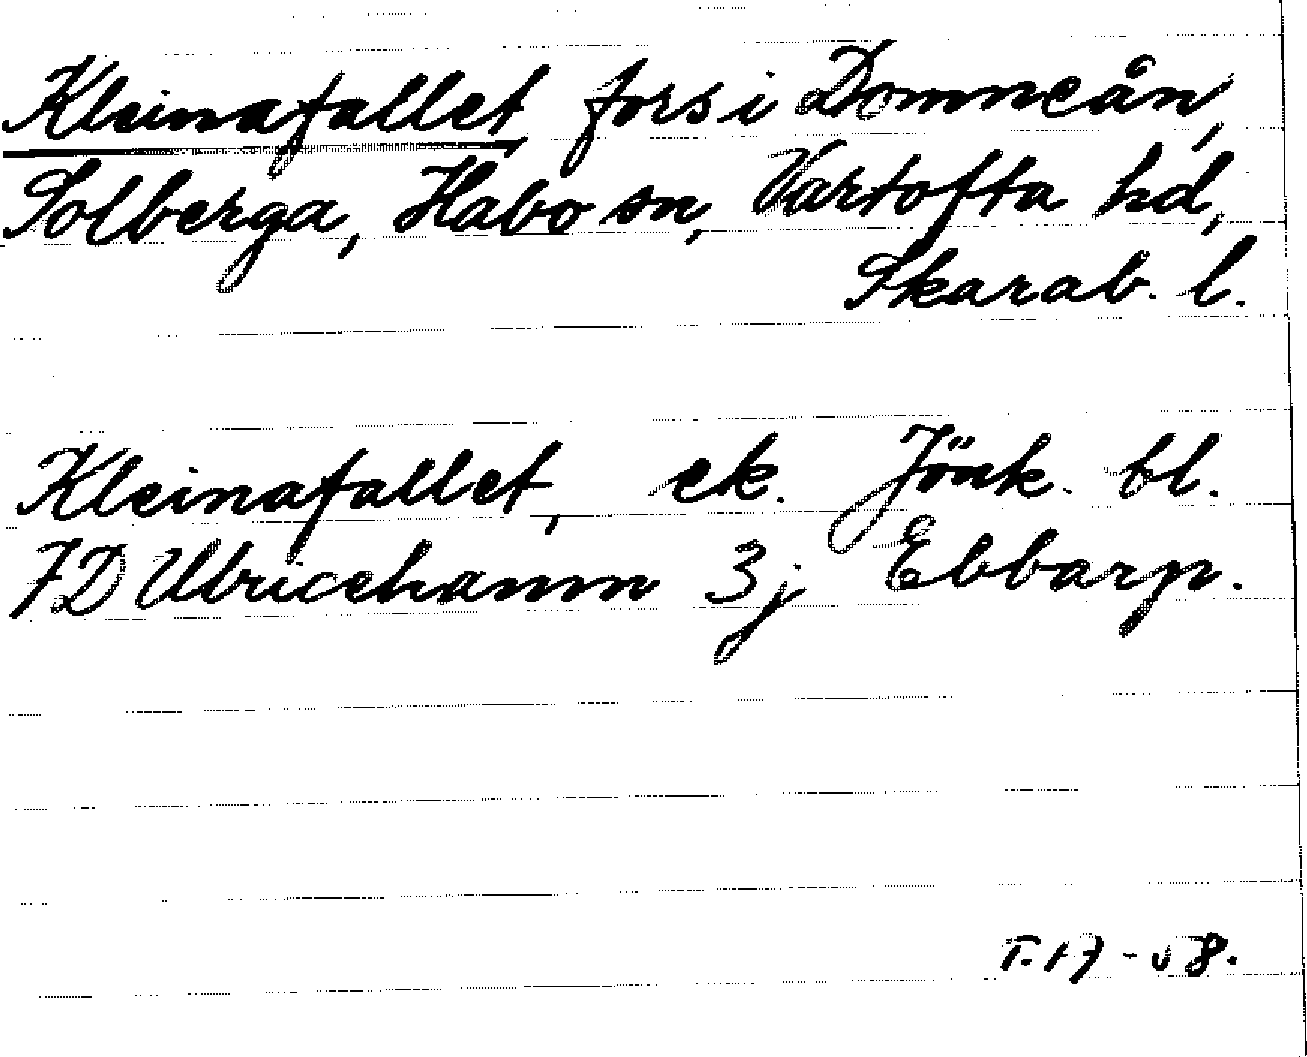 Kleinafallet, fors i Domneån,
Solberga, Habo sn, Vartofta hd,
Skarab. l.
Kleinafallet, ek. Jönk. bl.
7D Ulricehamn 3j Ebbarp.